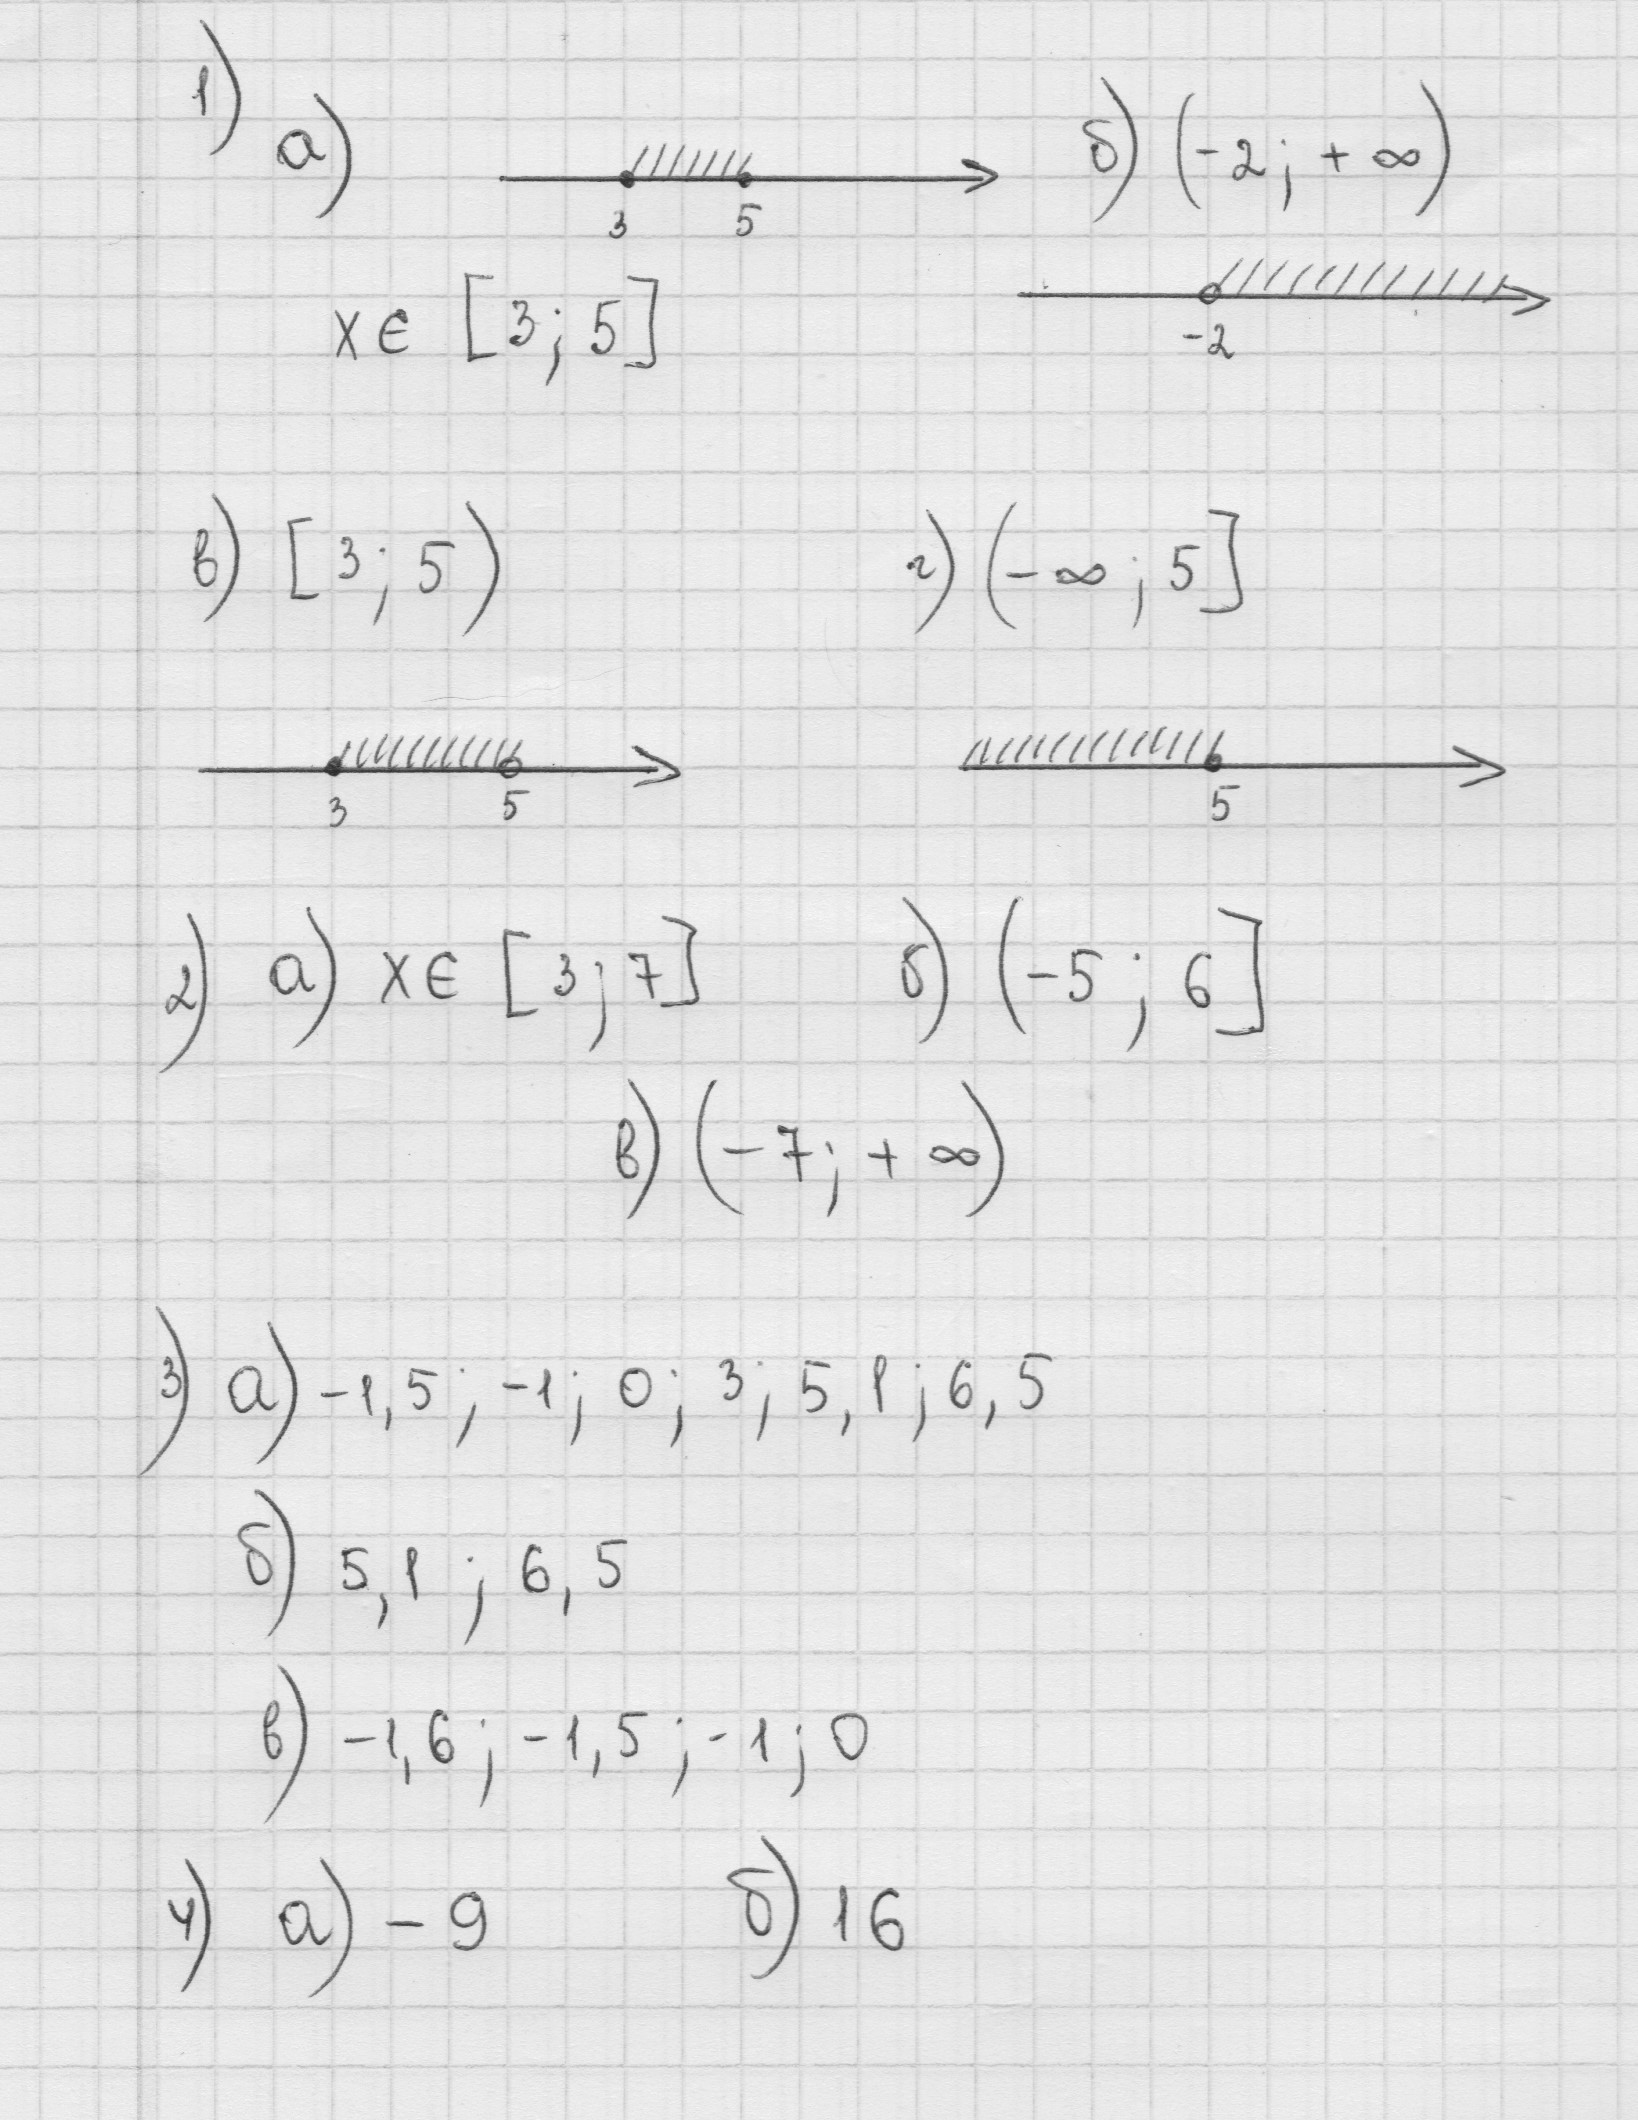 1) а) б) (-2; + ∞)
3 5
x ∈ [3; 5]
-2
в) [3; 5) г) (-∞; 5]
3 5 5
2) а) x ∈ [3; 7] б) (-5; 6]
в) (-7; + ∞)
3) а) -1,5; -1; 0; 3; 5,1; 6,5
б) 5,1; 6,5
в) -1,6; -1,5; -1; 0
4) а) -9 б) 16